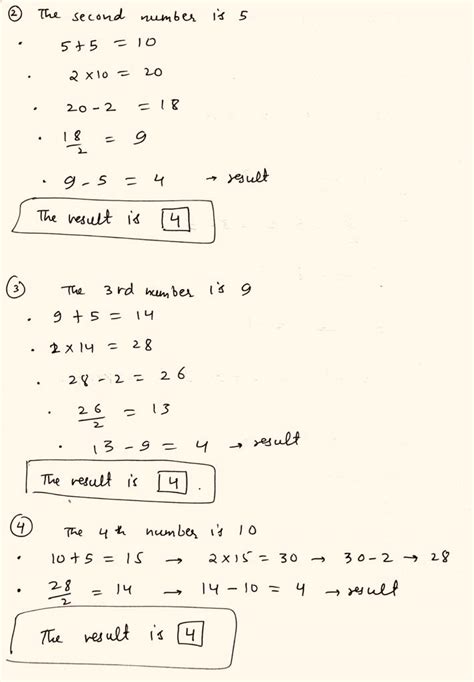 ② The second number is 5
• 5+5 = 10
• 2×10 = 20
• 20-2 = 18
• 18/2 = 9
• 9-5 = 4 → result
The result is 4
③ The 3rd number is 9
• 9+5 = 14
• 2×14 = 28
• 28-2 = 26
• 26/2 = 13
• 13-9 = 4 → result
The result is 4.
④ The 4th number is 10
• 10+5 = 15 → 2×15 = 30 → 30-2 → 28
• 28/2 = 14 → 14-10 = 4 → result
The result is 4